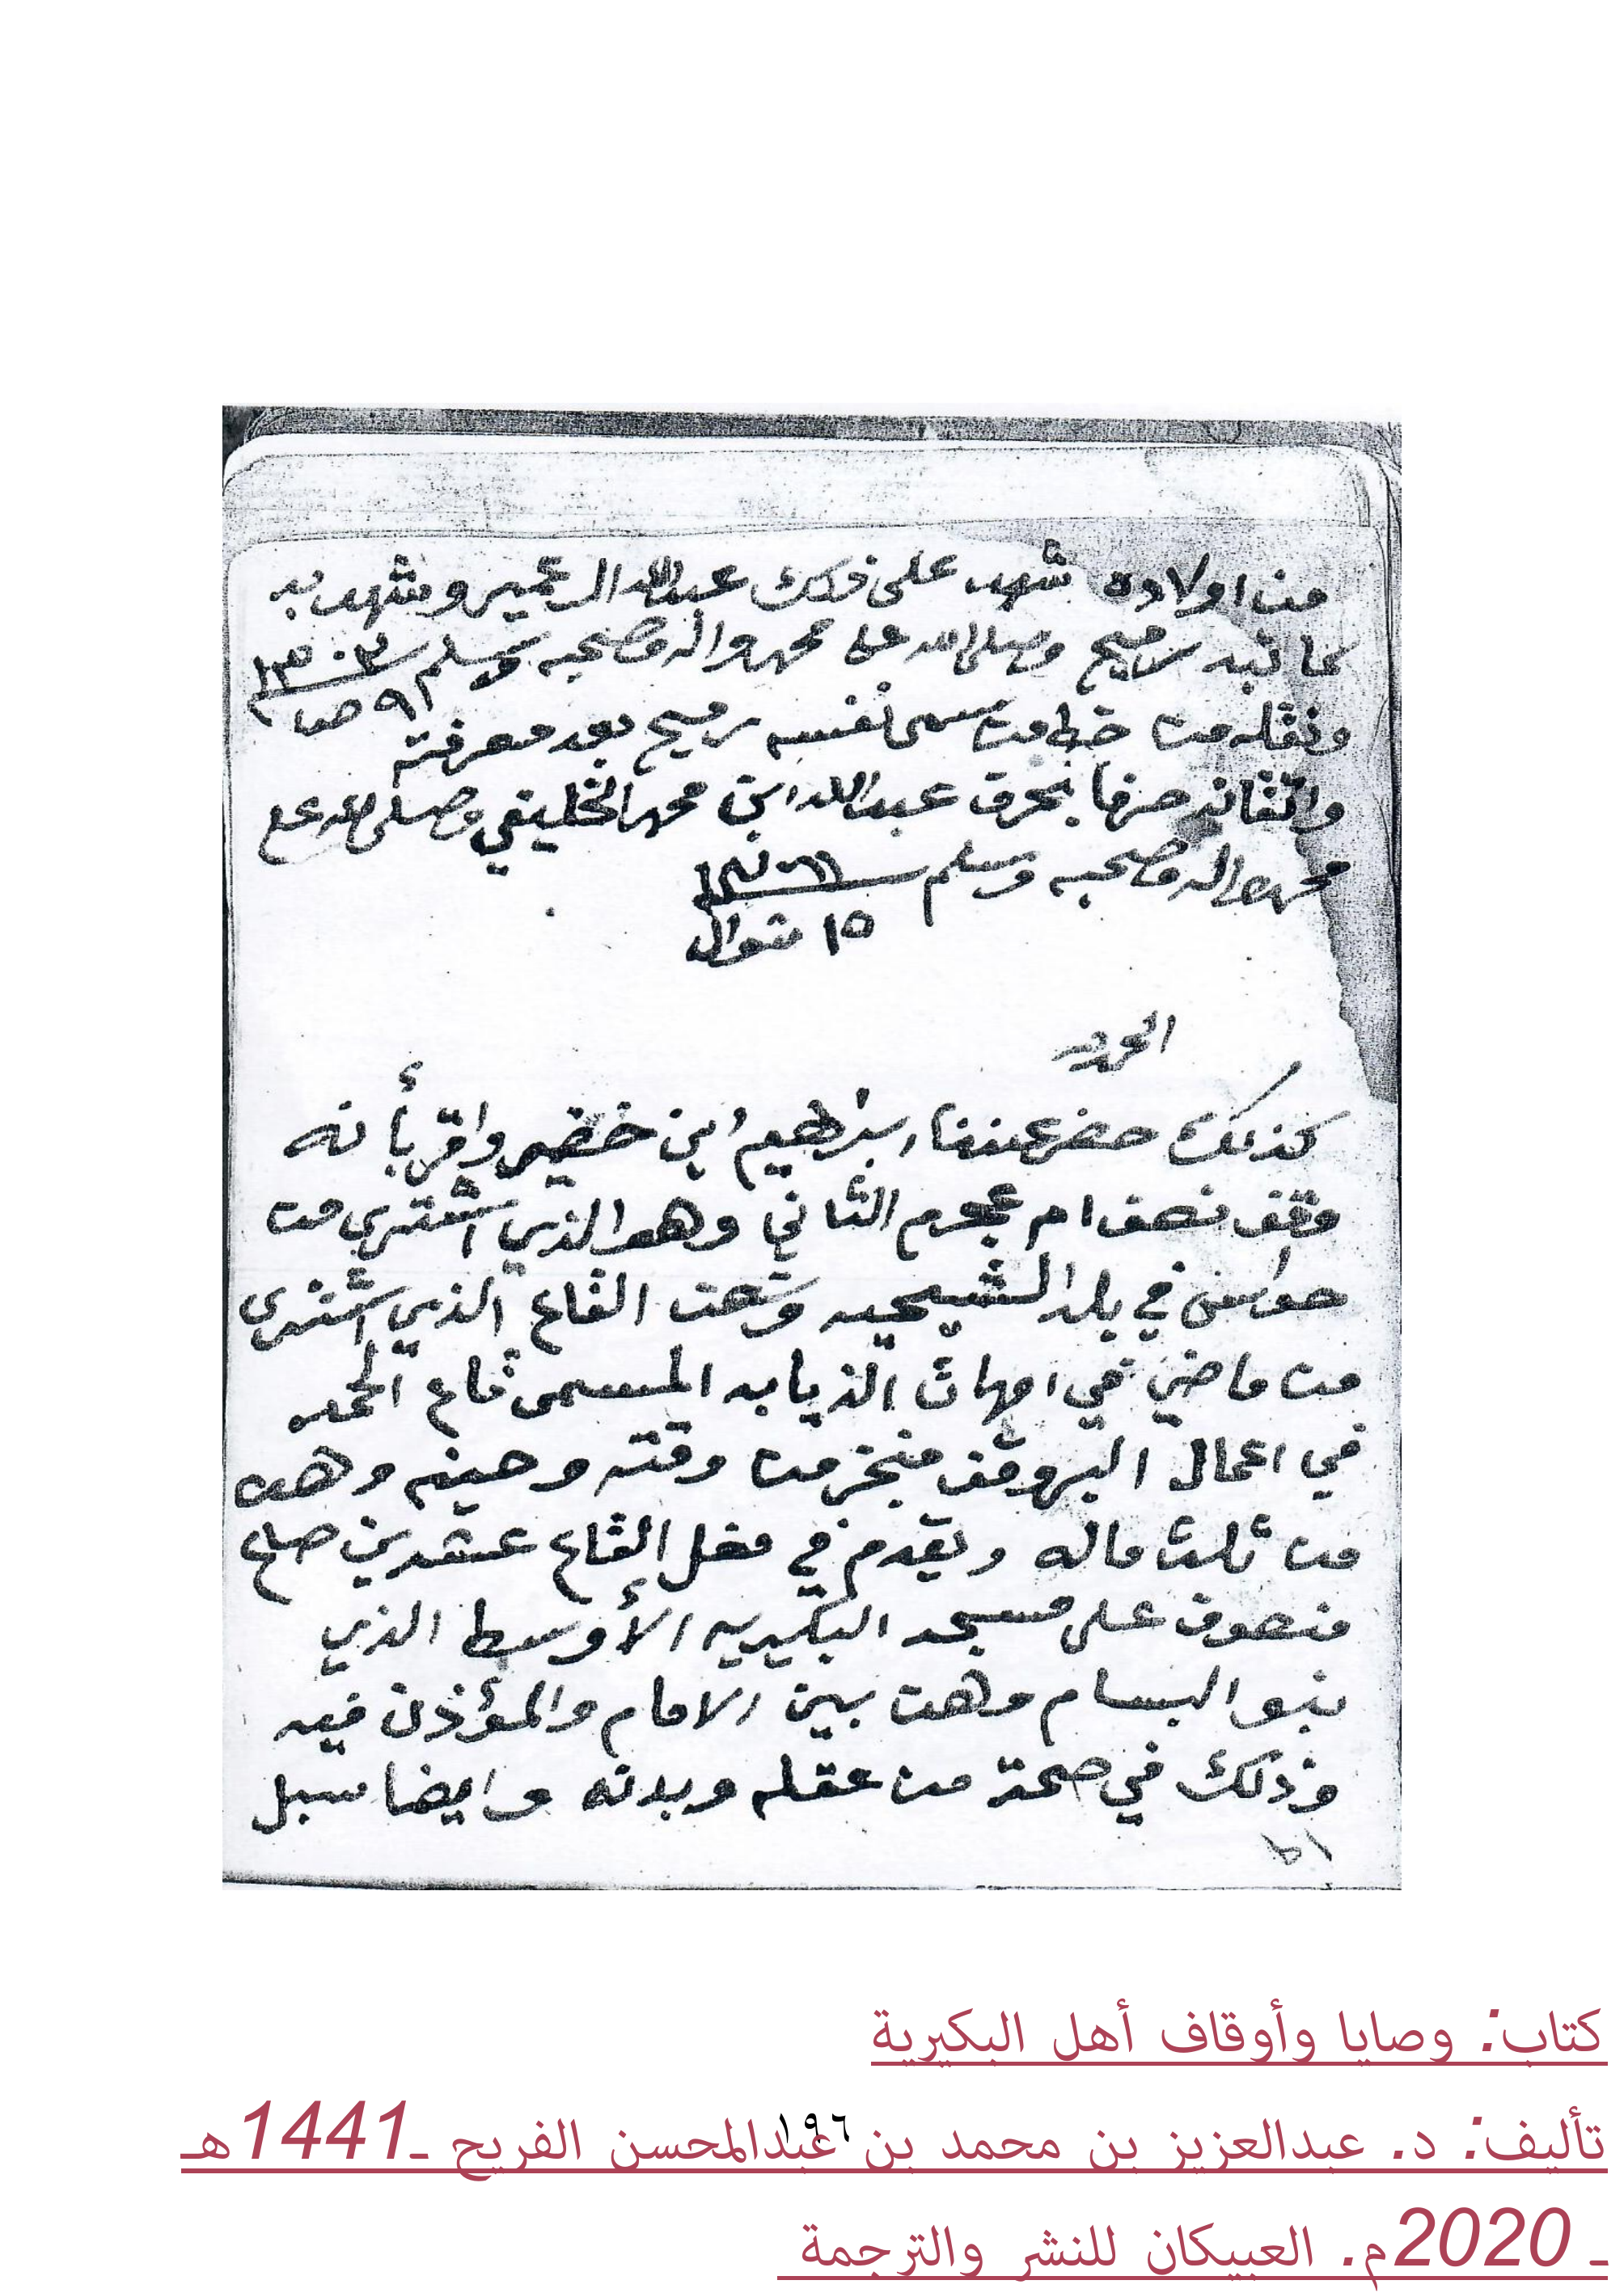 من اولاده شهد على ذلك عبدالله الدعمير وشهد به
كاتبه رميح وصلى الله على محمد واله وصحبه وسلم ١٣٠٣
٩
ونقله من خط من سمى نفسه رميح بعد معرفته
واتقانه حرفا بحرف عبدالله ابن محمد الخليفي وصلى الله على
محمد واله وصحبه وسلم
١٥ شوال
الحمد لله
كذلك حضر عندنا ابراهيم ابن خضير واقر بأنه
وقف نصف ام عجرم الثاني وهو الذي اشترى من
حواس في بلد الشيحيه وهن القاع الذي اشترى
من ماضي في امهات الذيابه المسمى قاع الحمد
في اعمال البر وقف منجز من وقته وحينه وهن
من ثلث ماله ويقدم في مغل القاع عشرين صاع
منصوف على مسجد البكيريه الأوسط الذي
بنو البسام وهن بين الامام والمؤذن فيه
وذلك في صحة من عقله وبدنه وايضا سبل
كتاب: وصايا وأوقاف أهل البكيرية
تأليف: د. عبدالعزيز بن محمد بن عبدالمحسن الفريح ـ1441هـ
ـ 2020م. العبيكان للنشر والترجمة
١٩٦